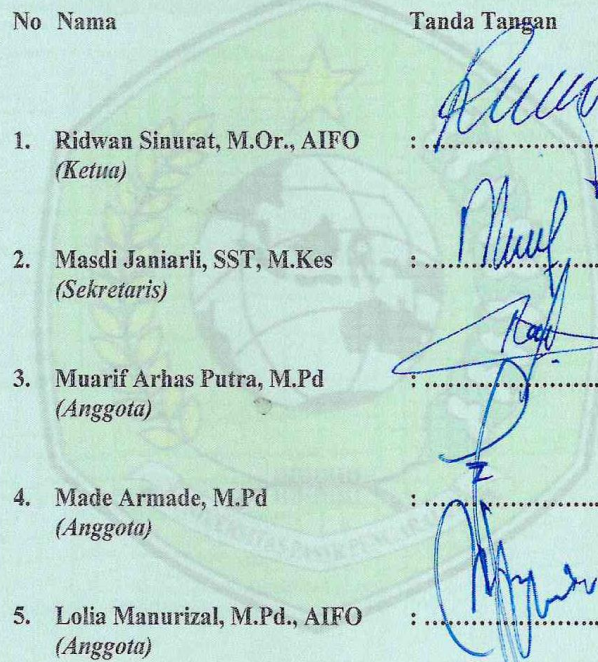 No Nama Tanda Tangan
1. Ridwan Sinurat, M.Or., AIFO : ....................
(Ketua)
2. Masdi Janiarli, SST, M.Kes : ....................
(Sekretaris)
3. Muarif Arhas Putra, M.Pd : ....................
(Anggota)
4. Made Armade, M.Pd : ....................
(Anggota)
5. Lolia Manurizal, M.Pd., AIFO : ....................
(Anggota)